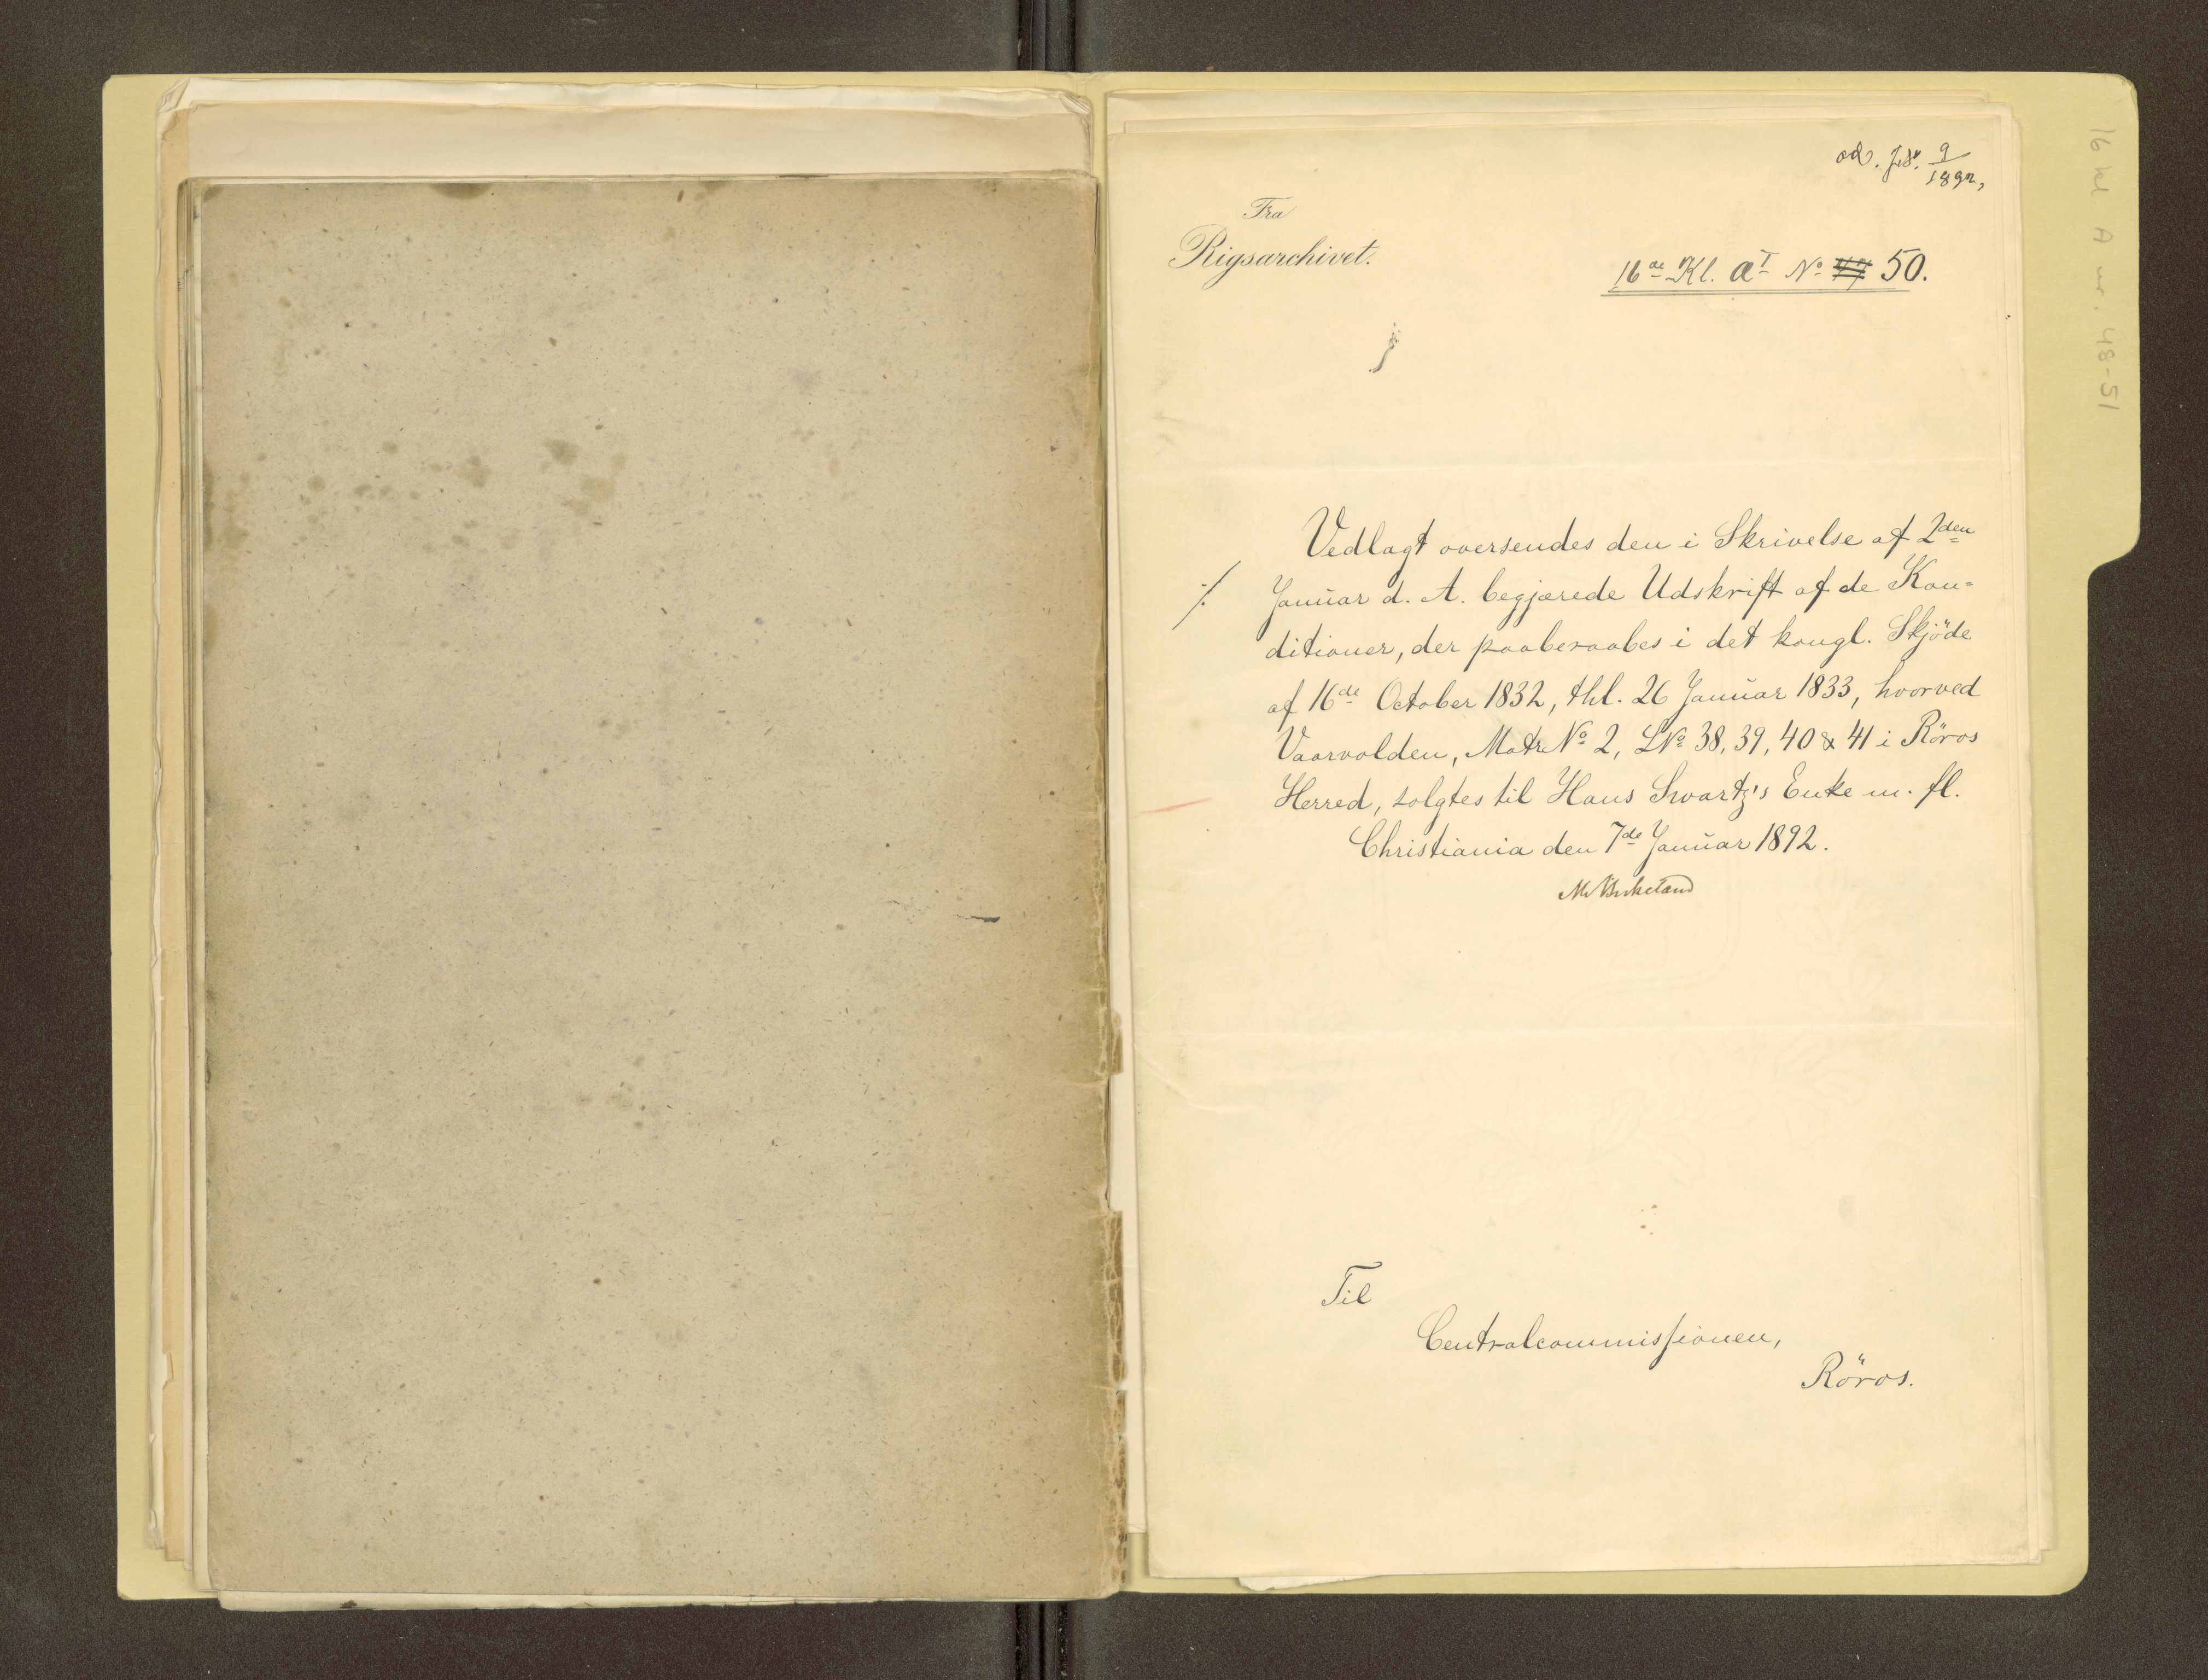 Fra
Rigsarchivet.
9
1892,
16de Kl. aI No 50.
Vedlagt oversendes den i Skrivelse af 2den
./. Januar d. A. begjærede Udskrift af de Kon=
ditioner, der paaberaabes i det kongl. Skjöde
af 16de October 1832, thl. 26 Januar 1833, hvorved
Vaarvolden, Matr No 2, LNo 38, 39, 40 & 41 i Röros
Herred, solgtes til Hans Swartz's Enke m. fl.
Christiania den 7de Januar 1892.
M Birkeland
Til
Centralcommissionen,
Röros.
16 kl A nr. 48-51